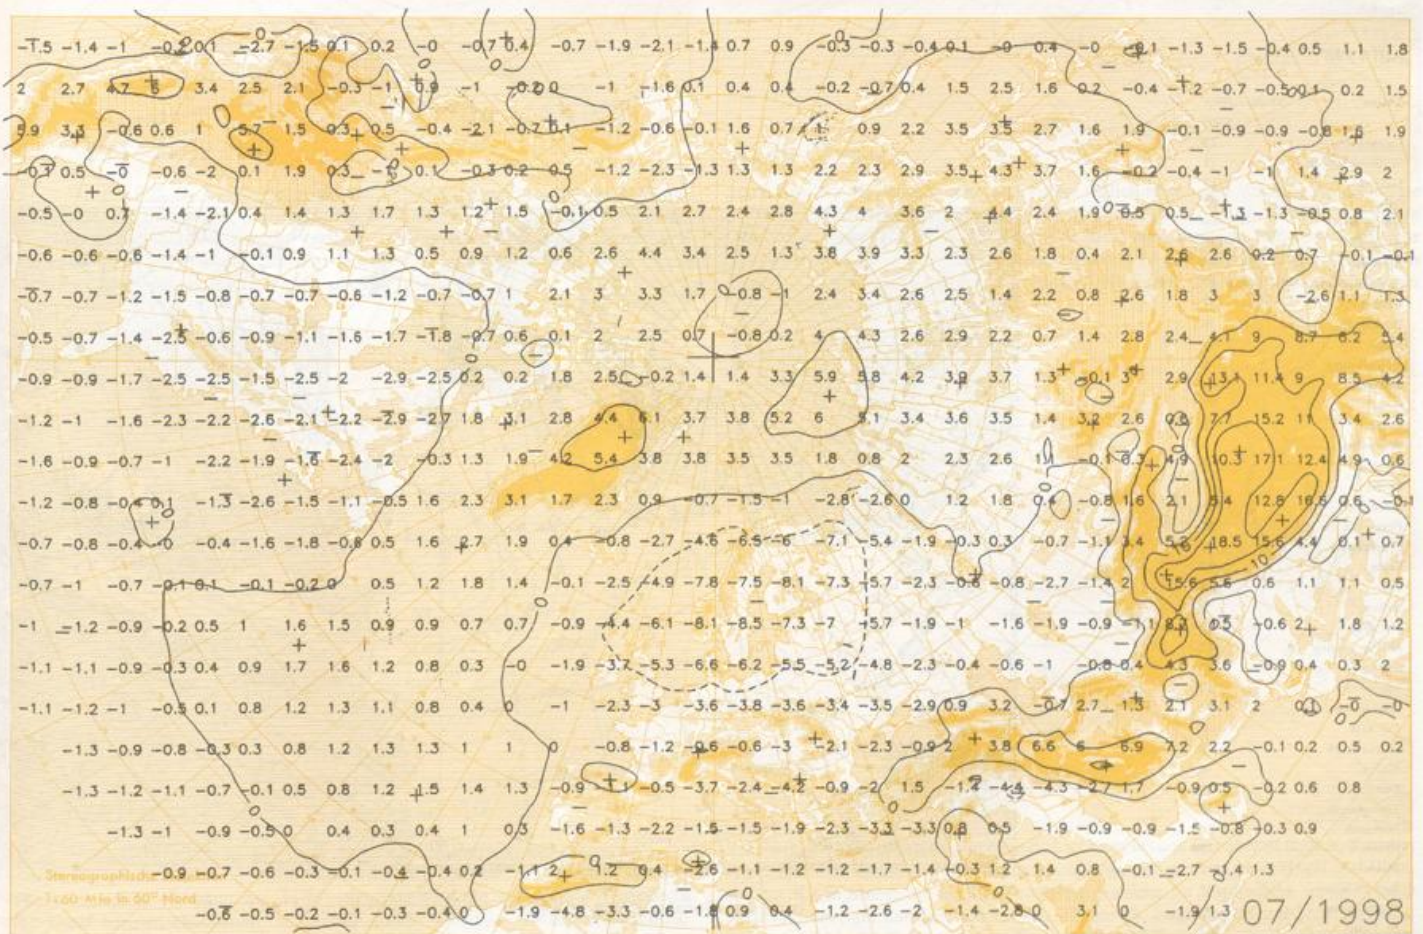 -1.5 -1.4 -1 -0.2 0.1 -2.7 -1.5 0.1 0.2 -0 -0.7 0.4 -0.7 -1.9 -2.1 -1.4 0.7 0.9 -0.3 -0.3 -0.4 0.1 -0 0.4 -0 -0.1 -1.3 -1.5 -0.4 0.5 1.1 1.8
2 2.7 4.7 6 3.4 2.5 2.1 -0.3 -1 0.9 -1 -0.2 0 -1 -1.6 0.1 0.4 0.4 -0.2 -0.7 0.4 1.5 2.5 1.6 0.2 -0.4 -1.2 -0.7 -0.5 0.1 0.2 1.5
5.9 3.3 -0.6 0.6 1 5.7 1.5 0.3 0.5 -0.4 -2.1 -0.7 0.1 -1.2 -0.6 -0.1 1.6 0.7 1 0.9 2.2 3.5 3.5 2.7 1.6 1.9 -0.1 -0.9 -0.9 -0.8 1.6 1.9
0.5 -0 -0.6 -2 0.1 1.9 0.3 0.1 -0.3 0.2 0.5 -1.2 -2.3 -1.3 1.3 1.3 2.2 2.3 2.9 3.5 4.3 3.7 1.6 -0.2 -0.4 -1 -1 1.4 2.9 2
-0.5 -0 0.7 -1.4 -2.1 0.4 1.4 1.3 1.7 1.3 1.2 1.5 -0.1 0.5 2.1 2.7 2.4 2.8 4.3 4 3.6 2 4.4 2.4 1.9 0.5 0.5 -1.3 -1.3 -0.5 0.8 2.1
-0.6 -0.6 -0.6 -1.4 -1 -0.1 0.9 1.1 1.3 0.5 0.9 1.2 0.6 2.6 4.4 3.4 2.5 1.3 3.8 3.9 3.3 2.3 2.6 1.8 0.4 2.1 2.6 2.6 0.2 0.7 -0.1 -0.1
-0.7 -0.7 -1.2 -1.5 -0.8 -0.7 -0.7 -0.6 -1.2 -0.7 -0.7 1 2.1 3 3.3 1.7 -0.8 -1 2.4 3.4 2.6 2.5 1.4 2.2 0.8 2.6 1.8 3 3 -2.6 1.1 1.3
-0.5 -0.7 -1.4 -2.5 -0.6 -0.9 -1.1 -1.6 -1.7 -1.8 -0.7 0.6 0.1 2 2.5 0.7 -0.8 0.2 4 4.3 2.6 2.9 2.2 0.7 1.4 2.8 2.4 4.1 9 8.7 6.2 5.4
-0.9 -0.9 -1.7 -2.5 -2.5 -1.5 -2.5 -2 -2.9 -2.5 0.2 0.2 1.8 2.5 -0.2 1.4 1.4 3.3 5.9 5.8 4.2 3.9 3.7 1.3 -0.1 3 2.9 13.1 11.4 9 8.5 4.2
-1.2 -1 -1.6 -2.3 -2.2 -2.6 -2.1 -2.2 -2.9 -2.7 1.8 3.1 2.8 4.4 6.1 3.7 3.8 5.2 6 5.1 3.4 3.6 3.5 1.4 3.2 2.6 0.6 7.7 15.2 11 3.4 2.6
-1.6 -0.9 -0.7 -1 -2.2 -1.9 -1.6 -2.4 -2 -0.3 1.3 1.9 4.2 5.4 3.8 3.8 3.5 3.5 1.8 0.8 2 2.3 2.6 1.1 -0.1 6.3 4.9 10.3 17.1 12.4 4.9 0.6
-1.2 -0.8 -0.4 0.1 -1.3 -2.6 -1.5 -1.1 -0.5 1.6 2.3 3.1 1.7 2.3 0.9 -0.7 -1.5 -1 -2.8 -2.6 0 1.2 1.8 0.4 -0.8 1.6 2.1 5.4 12.8 16.6 0.6 -0.1
-0.7 -0.8 -0.4 -0 -0.4 -1.6 -1.8 -0.6 0.5 1.6 2.7 1.9 0.4 -0.8 -2.7 -4.6 -6.5 -6 -7.1 -5.4 -1.9 -0.3 0.3 -0.7 -1.1 3.4 5.2 18.5 15.6 4.4 0.1 0.7
-0.7 -1 -0.7 -0.1 0.1 -0.1 -0.2 0 0.5 1.2 1.8 1.4 -0.1 -2.5 -4.9 -7.8 -7.5 -8.1 -7.3 -5.7 -2.3 -0.6 -0.8 -2.7 -1.4 2 15.6 5.6 0.6 1.1 1.1 0.5
-1 -1.2 -0.9 -0.2 0.5 1 1.6 1.5 0.9 0.9 0.7 0.7 -0.9 -4.4 -6.1 -8.1 -8.5 -7.3 -7 -5.7 -1.9 -1 -1.6 -1.9 -0.9 -1.1 8.7 0.5 -0.6 2 1.8 1.2
-1.1 -1.1 -0.9 -0.3 0.4 0.9 1.7 1.6 1.2 0.8 0.3 -0 -1.9 -3.7 -5.3 -6.6 -6.2 -5.5 -5.2 -4.8 -2.3 -0.4 -0.6 -1 -0.8 0.4 4.3 3.6 -0.9 0.4 0.3 2
-1.1 -1.2 -1 -0.5 0.1 0.8 1.2 1.3 1.1 0.8 0.4 0 -1 -2.3 -3 -3.6 -3.8 -3.6 -3.4 -3.5 -2.9 0.9 3.2 -0.7 2.7 1.3 2.1 3.1 2 0.1 -0 -0
-1.3 -0.9 -0.8 -0.3 0.3 0.8 1.2 1.3 1.3 1 1 0 -0.8 -1.2 -0.6 -0.6 -3 -2.1 -2.3 -0.9 2 3.8 6.6 6 6.9 7.2 2.2 -0.1 0.2 0.5 0.2
-1.3 -1.2 -1.1 -0.7 -0.1 0.5 0.8 1.2 1.5 1.4 1.3 -0.9 1.1 -0.5 -3.7 -2.4 -4.2 -0.9 -2 1.5 -1.4 -4.4 -4.3 -2.7 1.7 -0.9 0.5 -0.2 0.6 0.8
-1.3 -1 -0.9 -0.5 0 0.4 0.3 0.4 1 0.3 -1.6 -1.3 -2.2 -1.5 -1.5 -1.9 -2.3 -3.3 -3.3 0.8 0.5 -1.9 -0.9 -0.9 -1.5 -0.8 -0.3 0.9
-0.9 -0.7 -0.6 -0.3 -0.1 -0.4 -0.4 0.2 -1.1 2 1.2 0.4 -2.6 -1.1 -1.2 -1.2 -1.7 -1.4 -0.3 1.2 1.4 0.8 -0.1 -2.7 -1.4 1.3
Stereographische
1:60 Mio in 60° Nord
-0.6 -0.5 -0.2 -0.1 -0.3 -0.4 0 -1.9 -4.8 -3.3 -0.6 -1.8 0.9 0.4 -1.2 -2.6 -2 -1.4 -2.8 0 3.1 0 -1.9 1.3 07/1998